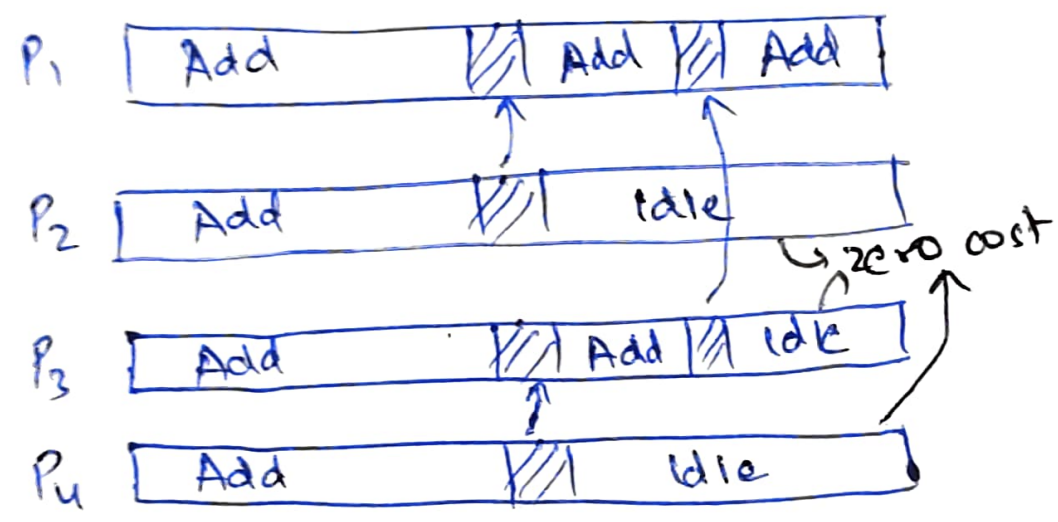 P1 Add Add Add
P2 Add Idle
zero cost
P3 Add Add Idle
P4 Add Idle